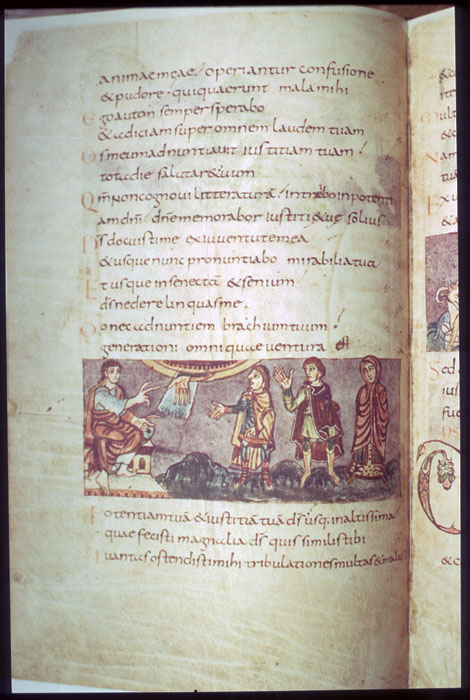 animae meae, operiantur confusione
& pudore qui quaerunt mala mihi
Ego autem semper sperabo
& adiciam super omnem laudem tuam
Os meum adnuntiavit iustitiam tuam
tota die salutare tuum
Qm̄ non cognovi litteraturā, introibo in potenti
am dn̄i dn̄e memorabor iustitiae tuae solius
Ds̄ docuisti me ex iuventute mea
& usque nunc pronuntiabo mirabilia tua
Et usque in senectā & senium
ds̄ ne derelinquas me.
Donec adnuntiem brachium tuum
generationi omni quae ventura est
Potentiam tuā & iustitiā tuā ds̄ usq; in altissima
quae fecisti magnalia ds̄ quis similis tibi
Quantas ostendisti mihi tribulationes multas & malas
Sed